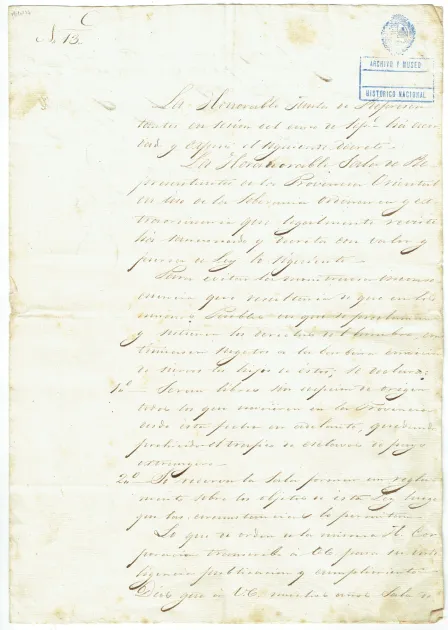 C
N. 13
ARCHIVO Y MUSEO
HISTORICO NACIONAL
La Honorable Junta de Represen
tantes en sesion del cinco de Sepe. ha acor
dado y espedido el siguiente decreto
La Honorable Sala de Re
presentantes de la Provincia Oriental
en uso de la Soberania ordinaria y es
traordinaria que legalmente reviste
ha sancionado y decreta con valor y
fuerza de Ley lo siguiente
Para evitar la monstruosa inconse
cuencia que resultaria de que en los
mismos Pueblos en que se proclaman
y sostienen los derechos del hombre, con
tinuasen sugetos a la barbara condicion
de siervos los hijos de estos, se declara:
1o. Seran libres sin de origen
todos los que nacieren en la Provincia
desde esta fecha en adelante, quedando
prohivido el trafico de esclavos de pays
extrangero
2o. Se reserva la Sala formar un regla
mento sobre los objetos de esta Ley luego
que las circunstancias lo permitan
Lo que de orden de la misma H. Cor
poracion transcribe a VE para su inte
ligencia publicacion y cumplimiento
Dios gue. a VE muchos años Sala de